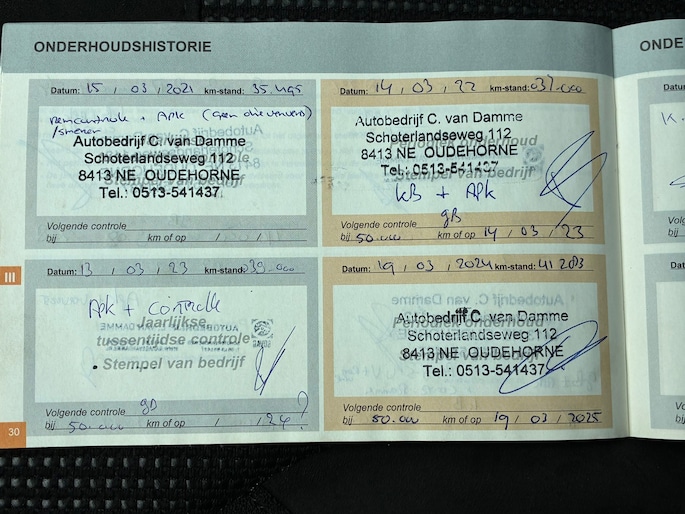 ONDERHOUDSHISTORIE
Datum: 15 / 03 / 2021 km-stand: 35.495
+ APK (geen olie ververs)
Autobedrijf C. van Damme
Schoterlandseweg 112
8413 NE OUDEHORNE
Tel.: 0513-541437
Stempel van bedrijf
Volgende controle
bij km of op / /
Datum: 14 / 03 / 22 km-stand: 037.000
Autobedrijf C. van Damme
Periodiek onderhoud
Schoterlandseweg 112
8413 NE OUDEHORNE
Tel.: 0513-541437
Stempel van bedrijf
KB + APK
gB
Volgende controle
bij 50.000 km of op 14 / 03 / 23
III
Datum: 13 / 03 / 23 km-stand: 039.000
APK + controle
Jaarlijkse
tussentijdse controle
Stempel van bedrijf
gB
Volgende controle
bij 50.000 km of op / / 24
Datum: 19 / 03 / 2024 km-stand: 41 203
Autobedrijf C. van Damme
Periodiek onderhoud
Schoterlandseweg 112
8413 NE OUDEHORNE
Stempel van bedrijf
Tel.: 0513-541437
Volgende controle
bij 50.000 km of op 19 / 03 / 2025
30
ONDE
Datum:
K.
Volgen
bij
Datum:
Volgen
bij